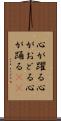 心が躍る心
がおどる心
が踊る